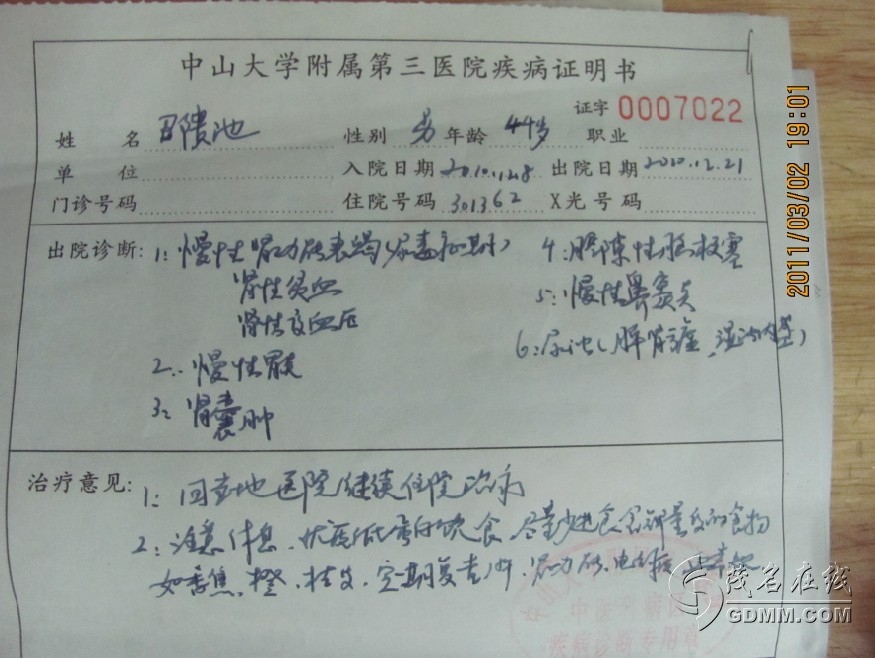 中山大学附属第三医院疾病证明书
证字 0007022
姓 名 性别 男 年龄 44岁 职业
单 位 入院日期 2010.12.8 出院日期 2010.12.21
门诊号码 住院号码 301362 X光号码
出院诊断: 1: 慢性肾功能衰竭(尿毒症期)
肾性贫血
肾性高血压
2. 慢性胃炎
3: 肾囊肿
4: 腔隙性脑梗塞
5: 慢性鼻窦炎
6: 尿浊(脾肾 湿浊内蕴)
治疗意见: 1: 回当地医院继续住院治病
2: 注意休息、优质低蛋白饮食、尽量少进食含钾量高的食物
如香焦、橙、桔、定期复查 肾功能、电解质
中山大学
疾病诊断专用章
2011/03/02 19:01
茂名在线
GDMM.COM